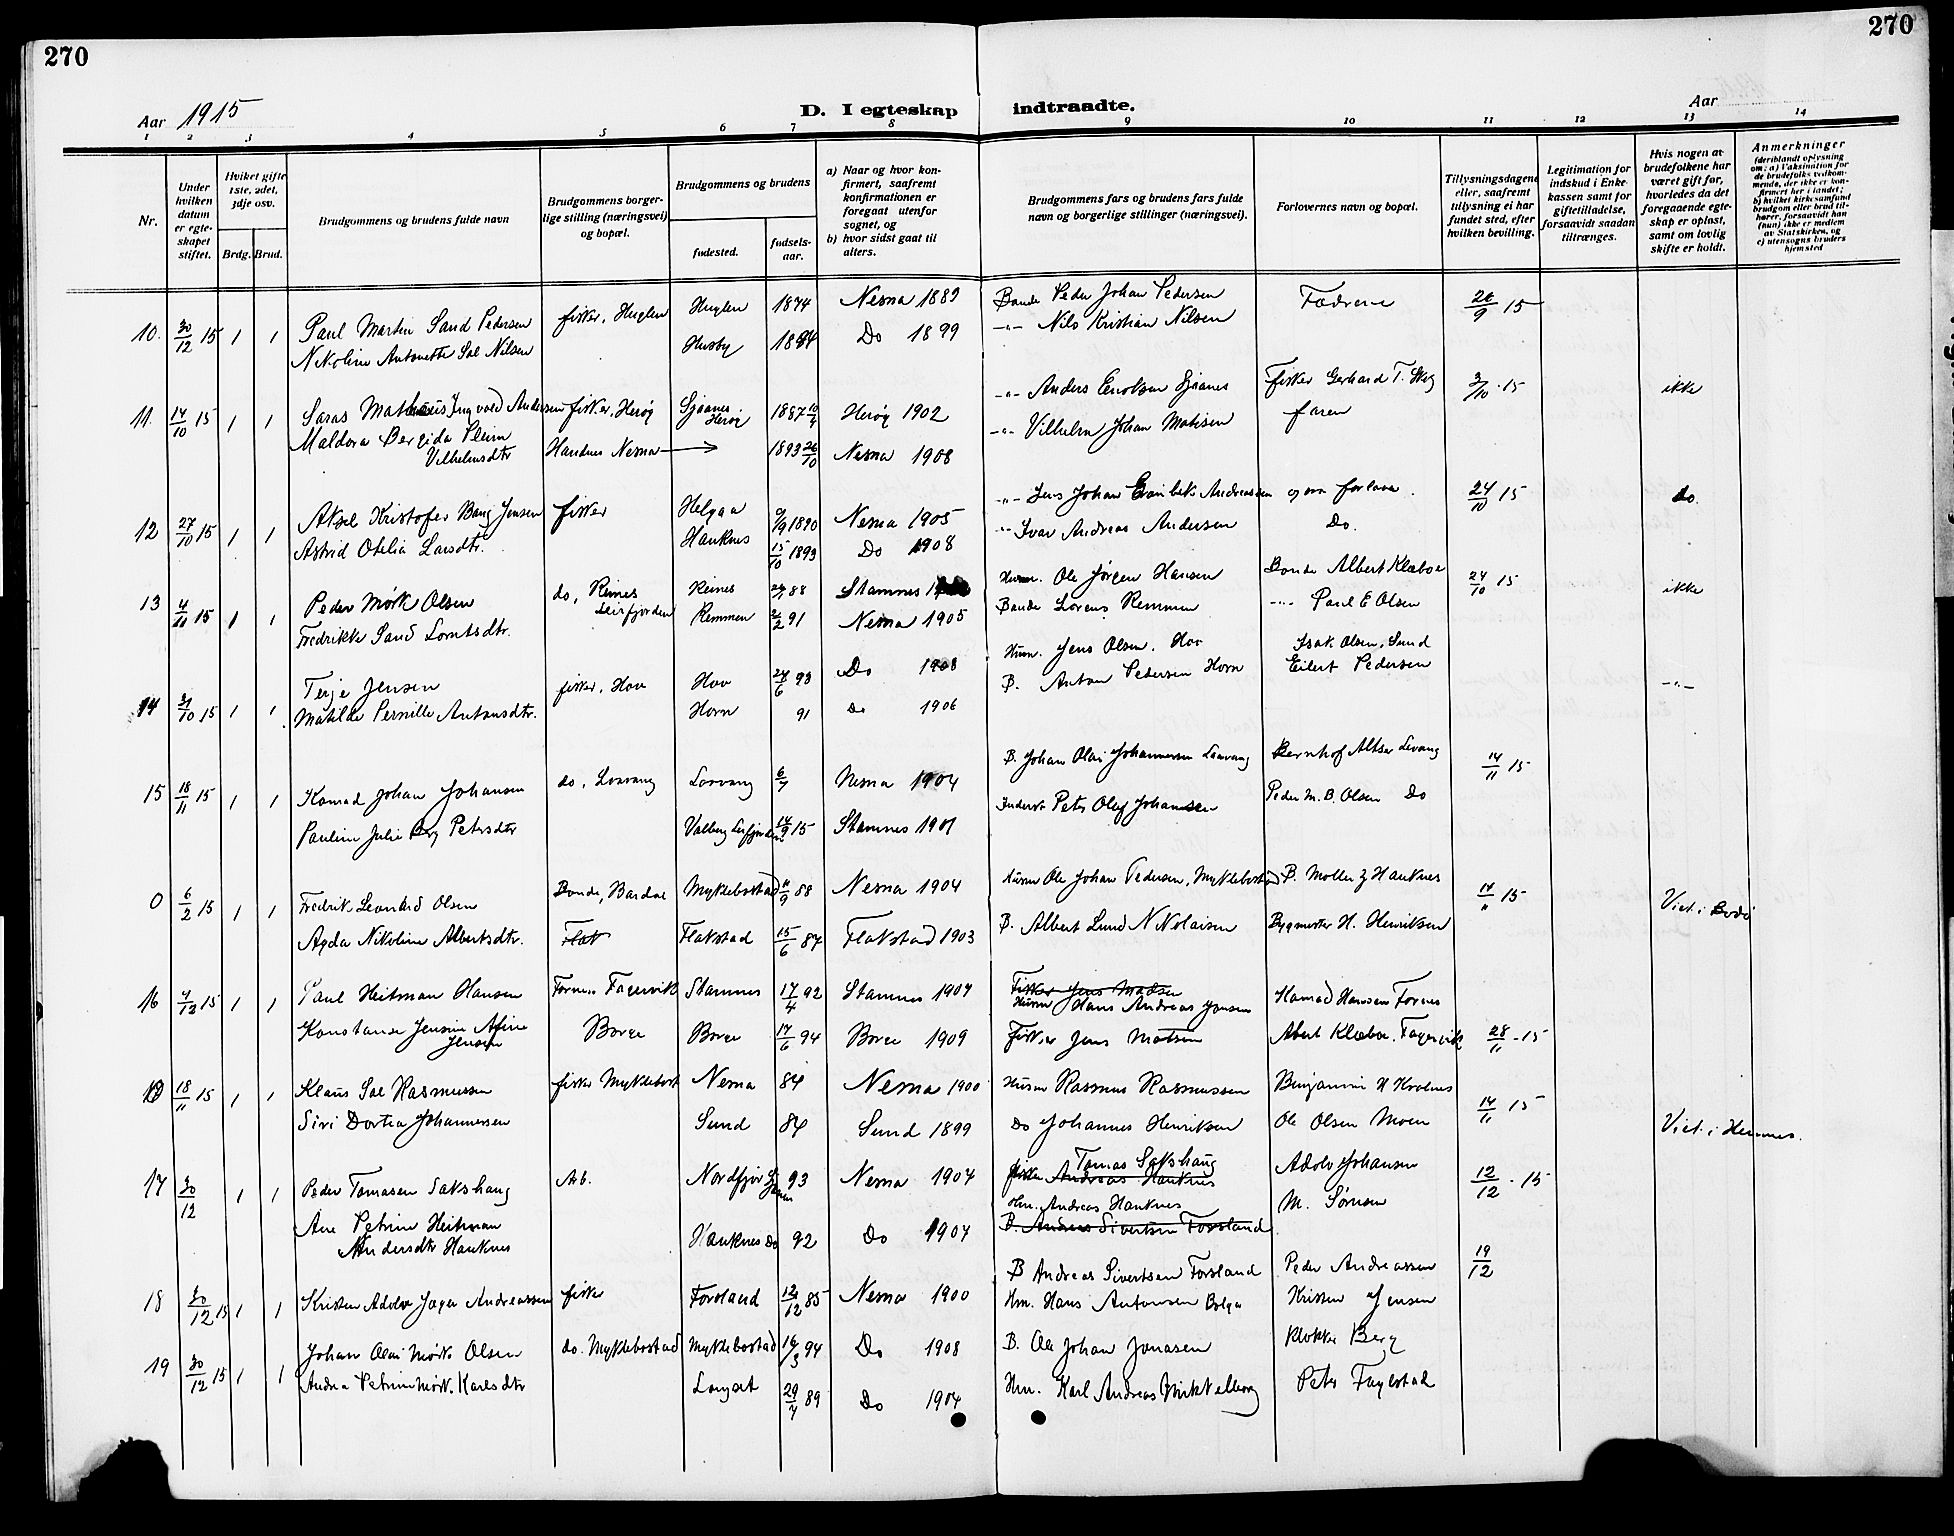 270
270
Aar 1915
D. I egteskap indtraadte.
Aar
1 2 3 4 5 6 7 8 9 10 11 12 13 14
Nr.
Under hvilken datum er egteskapet stiftet.
Hvilket gifte 1ste, 2det, 3dje osv.
Brdg. Brud.
Brudgommens og brudens fulde navn
Brudgommens borgerlige stilling (næringsvei) og bopæl.
Brudgommens og brudens
fødested.
fødselsaar.
a) Naar og hvor konfirmert, saafremt konfirmationen er foregaat utenfor sognet, og
b) hvor sidst gaat til alters.
Brudgommens fars og brudens fars fulde navn og borgerlige stillinger (næringsvei).
Forlovernes navn og bopæl.
Tillysningsdagene eller, saafremt tillysning ei har fundet sted, efter hvilken bevilling.
Legitimation for indskud i Enkekassen samt for giftetilladelse, forsaavidt saadan tiltrænges.
Hvis nogen av brudefolkene har været gift før, hvorledes da det foregaaende egteskap er opløst, samt om lovlig skifte er holdt.
Anmerkninger
(deriblandt oplysning om: a) Vaksination for de brudefolks vedkommende, der ikke er konfirmert her i landet; b) hvilket kirkesamfund brudgom eller brud tilhører, forsaavidt han (hun) ikke er medlem av Statskirken, og c) utensogns bruders hjemsted
10. 30/12 15 1 1 Paul Martin Sand Pedersen fisker, Huglen Huglen 1874 Nesna 1889 Bonde Peder Johan Pedersen Fædrene 26/9 15
Nikoline Antonette Sol Nilsen Husby 1884 Do 1899 -"- Nils Kristian Nilsen
11. 14/10 15 1 1 Saras Mathæus Ingvald Andersen fisker, Herøy Sjøanes Herøy 1887 10/4 Herøy 1902 -"- Anders Enoksen Sjøanes Fisker Gerhard T. 3/10 . 15 ikke
Maldora Bergida Vilhelmsdtr Handnes Nesna 1893 26/10 Nesna 1908 -"- Vilhelm Johan Matisen faren
12 27/10 15 1 1 Aksel Kristofer Bang Jensen fisker Helgaa 9/9 1890 Nesna 1905 -"- Jens Johan Andreassen 24/10 15 do.
Astrid Otelia Larsdtr. Hauknes 15/10 1893 Do 1908 -"- Ivar Andreas Andersen Do.
13 4/11 15 1 1 Peder Mørk Olsen do, Reines Leirfjorden Reines 88 Stamnes Husm. Ole Jørgen Hansen Bonde Albert Klæboe 24/10 15 ikke
Fredrikke Sand Lorntsdtr. Remmen 2/2 91 Nesna 1905 Bonde Lorens Remmen -"- Paul E Olsen
14 31/10 15 1 1 Terje Jensen fisker, Hov Hov 24/6 93 Do 1908 Husm. Jens Olsen, Hov Isak Olsen, Sund -"-
Matilde Pernille Antonsdtr. Horn 91 Do 1906 B. Anton Pedersen Horn Eilert Pedersen
15 18/11 15 1 1 Konrad Johan Johansen do, Levang Levang 6/7 Nesna 1904 B. Johan Olai Johannessen Levang Bernhof Altser Levang 14/11 15
Pauline Julie Berg Petersdtr Valberg Leirfjorden 14/9 15 Stamnes 1901 Inderst Peter Olaf Johansen Peder M. B. Olsen Do
0 6/2 15 1 1 Fredrik Leonhard Olsen Bonde, Bardal Myklebostad 11/9 88 Nesna 1904 Husm Ole Johan Pedersen, Myklebostad B. Moller Hauknes 14/11 15 Viet i Bodø
Agda Nikoline Albertsdtr. Flak Flakstad 15/6 84 Flakstad 1903 B. Albert Lund Nikolaisen Bygmester H. Henriksen
16 4/12 15 1 1 Paul Heitman Hansen Fornes Fagervik Stamnes 17/4 92 Stamnes 1907 Fisker Jens Madsen
Husm Hans Andreas Jensen Konrad Hansen Fornes
Konstanse Jensine Afine Jensen Borge Borge 14/6 94 Borge 1909 Fisker Jens Matsen Albert Klæboe, Fagervik 28/11 - 15
0 18/11 15 1 1 Klaus Sol Rasmussen fisker Myklebost Nesna 84 Nesna 1900 Husm Rasmus Rasmussen Benjamin H Kvalnes 14/11 15
Siri Dortea Johannessen Sund 84 Sund 1899 Do Johannes Henriksen Ole Olsen Moen Viet i Hemnes.
17 30/12 1 1 Peder Tomasen Sakshaug Ab. Nordfjor 93 Nesna 1907 Tomas Sakshaug Adolv Johansen 12/12 . 15
fisker Andreas Hauknes
Ane Petrine Heitman Andersdtr Hauknes Hauknes Do 92 Do 1907 Hm. Andreas Hauknes M. Sørnsen
B. Andreas Sivertsen Forsland
18 30/12 15 1 1 Kristen Adolv Jager Andreassen fisker Forsland 12/12 85 Nesna 1900 B Andreas Sivertsen Forsland Peder Andreassen 19/12
Hm. Hans Antonsen Bolga Kristen Jensen
19 30/12 15 1 1 Johan Olai Mørk Olsen do. Myklebostad Myklebostad 16/3 94 Do 1908 B. Ole Johan Jonasen Klokker Berg
Andrea Petrine Mørk. Karlsdtr Longset 29/7 89 Do 1904 Hm. Karl Andreas Peter Fagerstad